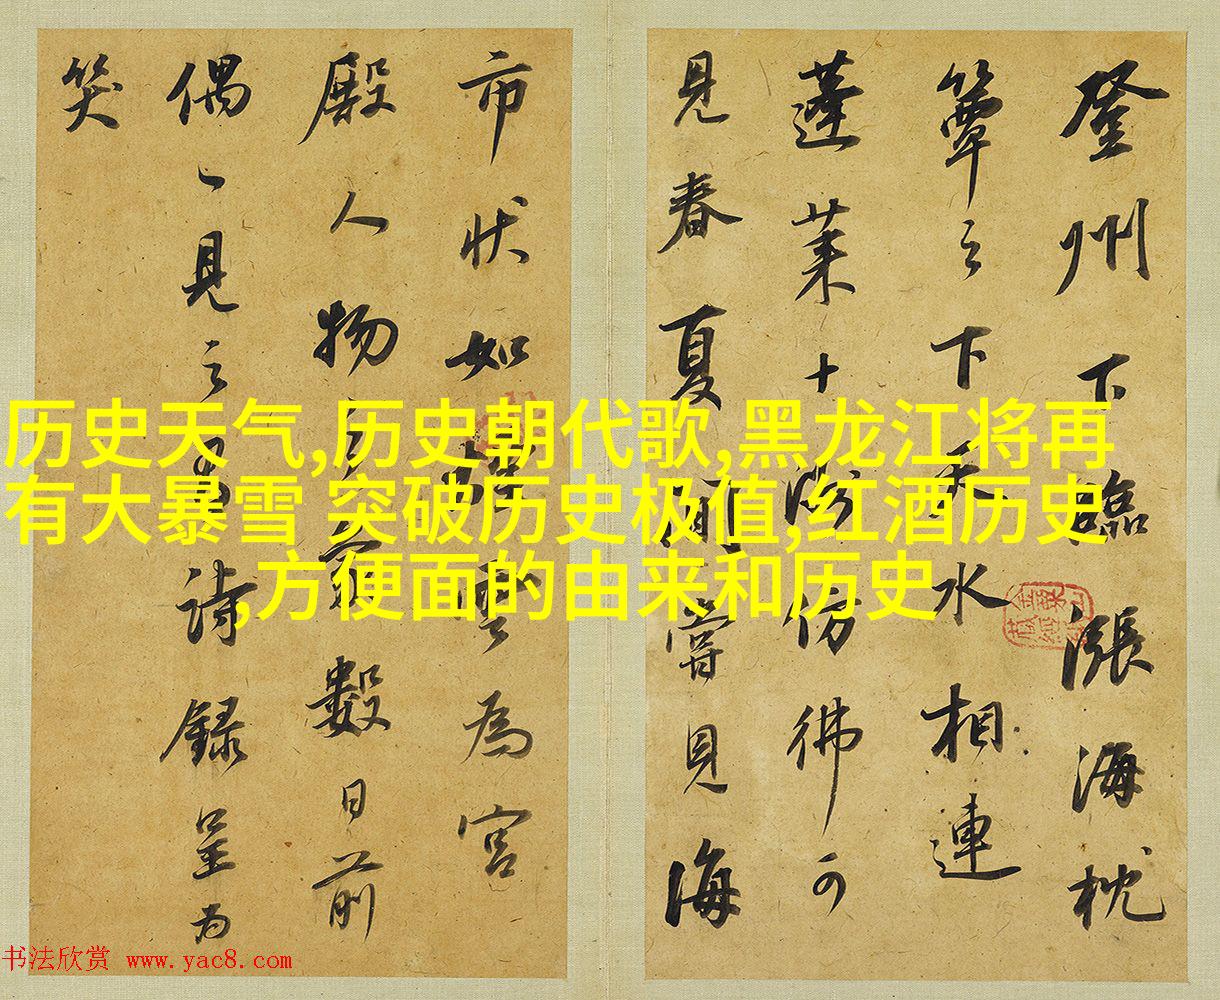 登州下臨漲海枕
簟之下天水相連
蓬萊十洲彷彿可
見春夏間嘗見海
市狀如雲為宮
殿人物之象數日前
偶一見之有詩錄呈為
笑
历史天气,历史朝代歌,黑龙江将再
有大暴雪 突破历史极值,红酒历史
,方便面的由来和历史
书法欣赏 www.yac8.com